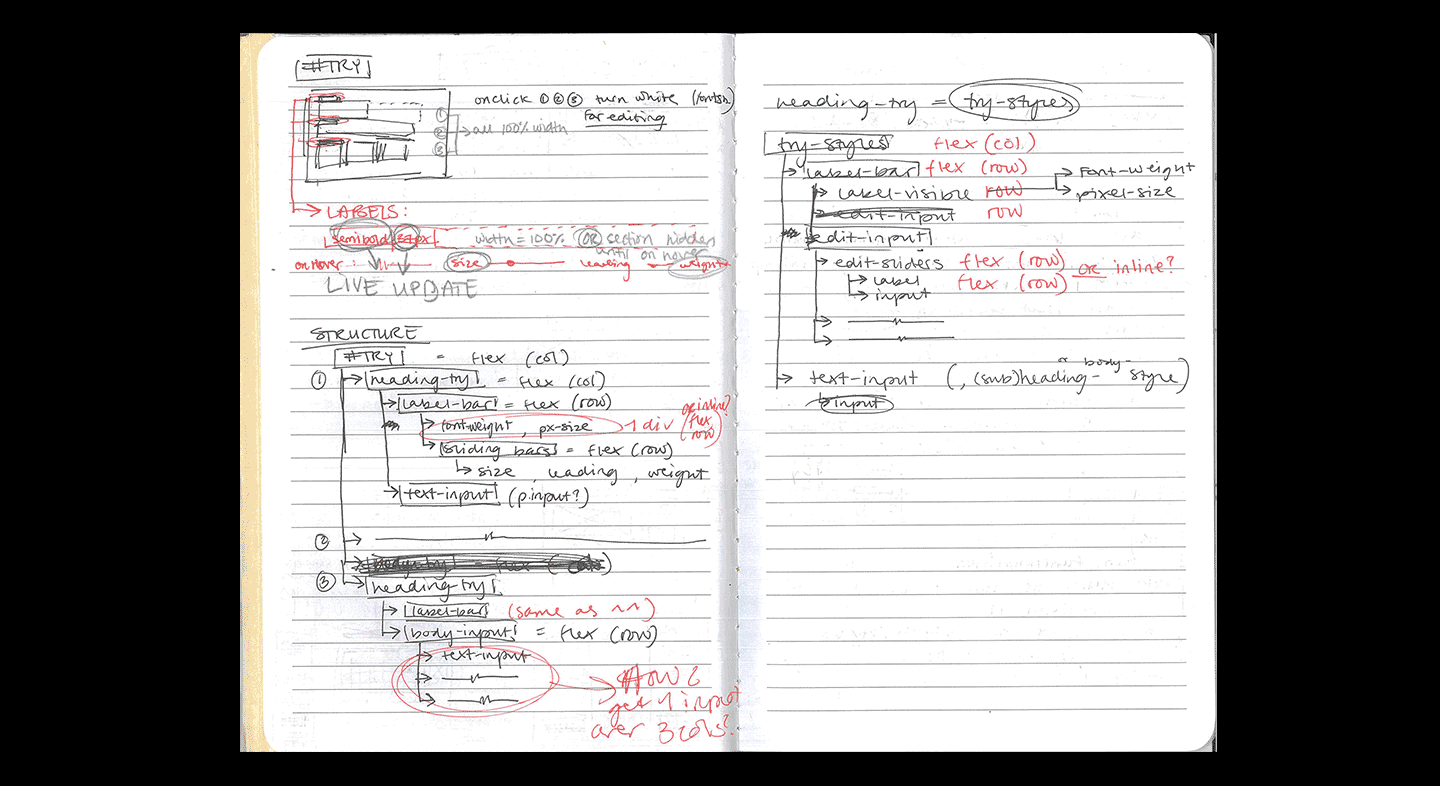 #TRY
onclick ① ② ③ turn white
for editing
① 
② → all 100% width
③
→ LABELS:
semibold 37px width = 100% OR section hidden
until on hover
on hover: size leading weight
LIVE UPDATE
STRUCTURE
#TRY = flex (col)
① → heading-try = flex (col)
→ label-bar = flex (row)
→ font-weight, px-size 1 div (or inline? flex row)
→ sliding bars = flex (row)
↳ size, leading, weight
→ text-input (p.input?)
② →
→ body-try = flex (col)
③ → heading-try
→ label-bar (same as ^^)
→ body-input = flex (row)
→ text-input
→
→
HOW 2
get 1 input
over 3 cols?
heading-try = try-styles
try-styles flex (col)
→ label-bar flex (row)
→ label-visible row → Font-weight
→ pixel-size
edit-input row
edit-input
→ edit-sliders flex (row)
→ label flex (row) or inline?
→ input
→
→
→ text-input (, (sub)heading- or body- style)
↳ input